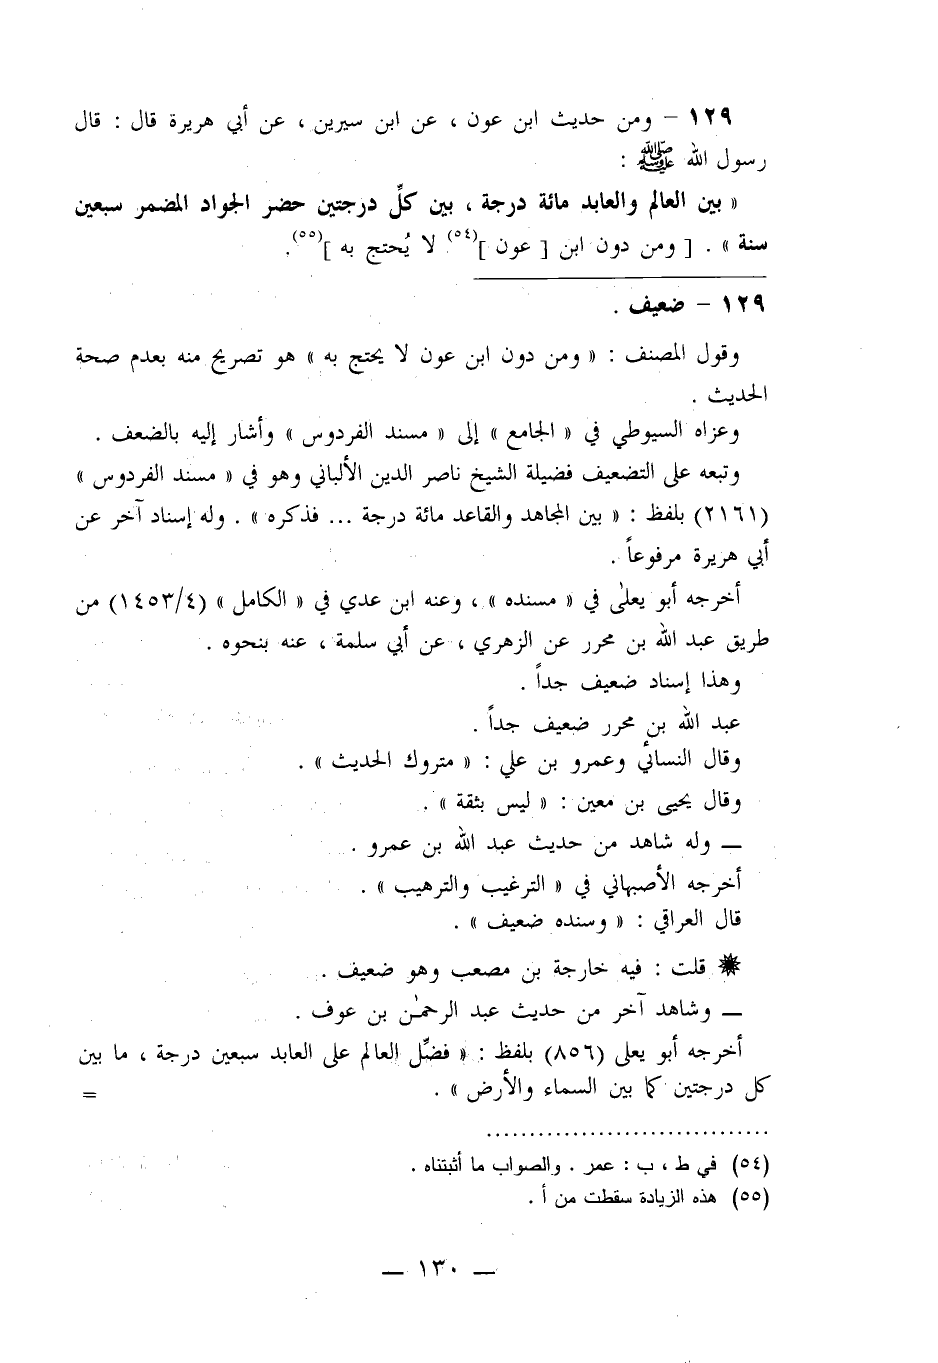 ١٢٩ – ومن حديث ابن عون ، عن ابن سيرين ، عن أبي هريرة قال : قال
رسول الله ﷺ :
« بين العالم والعابد مائة درجة ، بين كلِّ درجتين حضر الجواد المضمر سبعين
سنة » . [ ومن دون ابن [ عون ](٥٤) لا يُحتج به ](٥٥).
١٢٩ – ضعيف .
وقول المصنف : « ومن دون ابن عون لا يحتج به » هو تصريح منه بعدم صحة
الحديث .
وعزاه السيوطي في « الجامع » إلى « مسند الفردوس » وأشار إليه بالضعف .
وتبعه على التضعيف فضيلة الشيخ ناصر الدين الألباني وهو في « مسند الفردوس »
(٢١٦١) بلفظ : « بين المجاهد والقاعد مائة درجة ... فذكره » . وله إسناد آخر عن
أبي هريرة مرفوعاً .
أخرجه أبو يعلىٰ في « مسنده » ، وعنه ابن عدي في « الكامل » (١٤٥٣/٤) من
طريق عبد الله بن محرر عن الزهري ، عن أبي سلمة ، عنه بنحوه .
وهذا إسناد ضعيف جداً .
عبد الله بن محرر ضعيف جداً .
وقال النسائي وعمرو بن علي : « متروك الحديث » .
وقال يحيى بن معين : « ليس بثقة » .
— وله شاهد من حديث عبد الله بن عمرو .
أخرجه الأصبهاني في « الترغيب والترهيب » .
قال العراقي : « وسنده ضعيف » .
✹ قلت : فيه خارجة بن مصعب وهو ضعيف .
— وشاهد آخر من حديث عبد الرحمٰن بن عوف .
أخرجه أبو يعلى (٨٥٦) بلفظ : « فضِّل العالم على العابد سبعين درجة ، ما بين
كل درجتين كما بين السماء والأرض » . =
(٥٤) في ط ، ب : عمر . والصواب ما أثبتناه .
(٥٥) هذه الزيادة سقطت من أ .
— ١٣٠ —